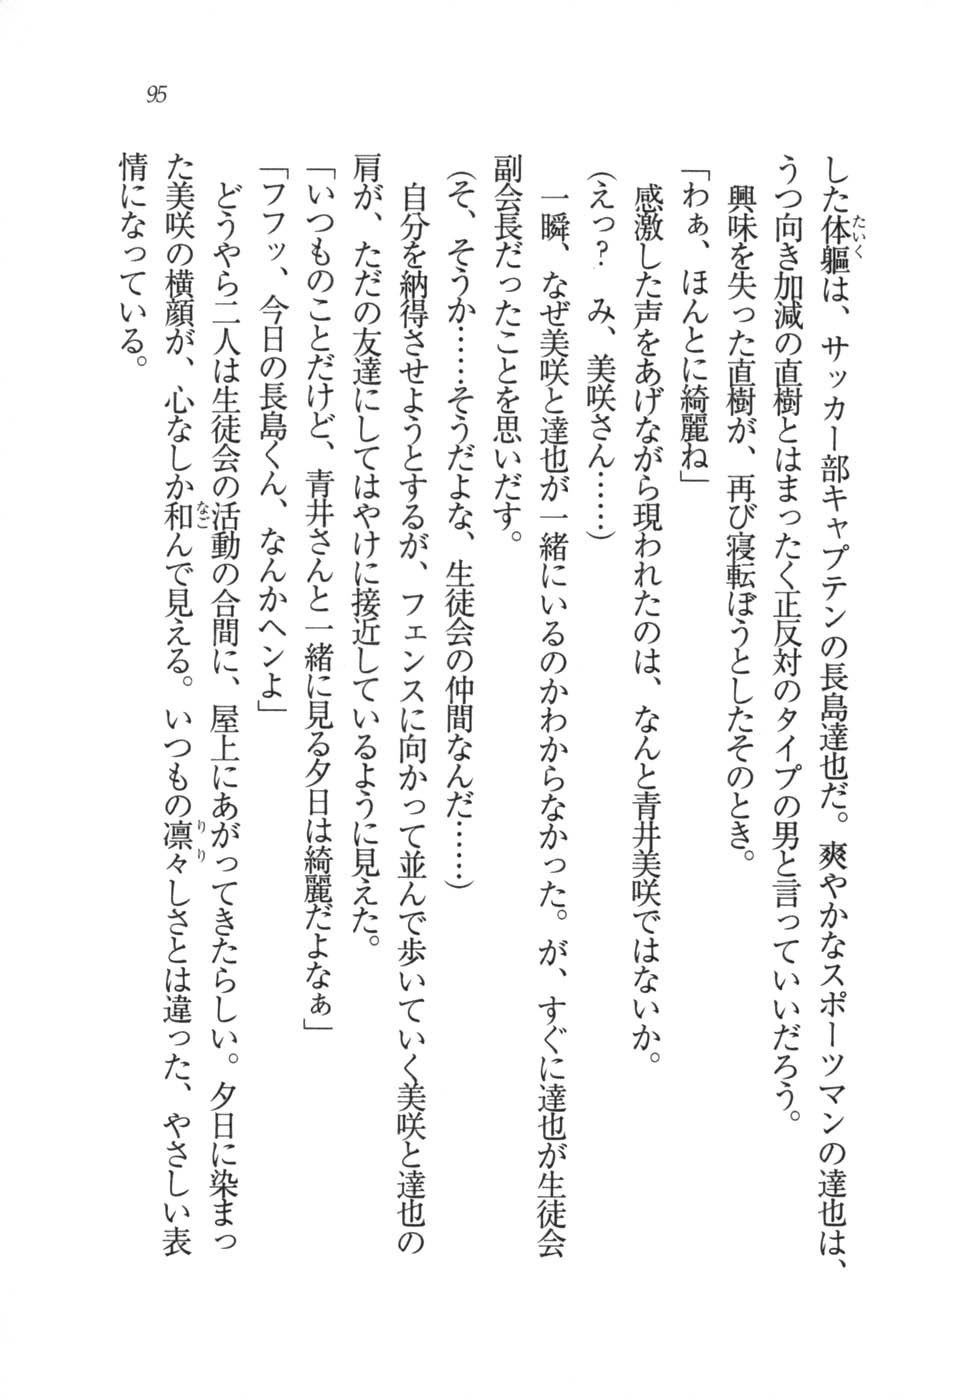 95
した体軀は、サッカー部キャプテンの長島達也だ。爽やかなスポーツマンの達也は、
うつ向き加減の直樹とはまったく正反対のタイプの男と言っていいだろう。
興味を失った直樹が、再び寝転ぼうとしたそのとき。
「わぁ、ほんとに綺麗ね」
感激した声をあげながら現われたのは、なんと青井美咲ではないか。
(えっ?　み、美咲さん……)
一瞬、なぜ美咲と達也が一緒にいるのかわからなかった。が、すぐに達也が生徒会
副会長だったことを思いだす。
(そ、そうか……そうだよな、生徒会の仲間なんだ……)
自分を納得させようとするが、フェンスに向かって並んで歩いていく美咲と達也の
肩が、ただの友達にしてはやけに接近しているように見えた。
「いつものことだけど、青井さんと一緒に見る夕日は綺麗だよなぁ」
「フフッ、今日の長島くん、なんかヘンよ」
どうやら二人は生徒会の活動の合間に、屋上にあがってきたらしい。夕日に染まっ
た美咲の横顔が、心なしか和んで見える。いつもの凛々しさとは違った、やさしい表
情になっている。
たいく
なご
りり